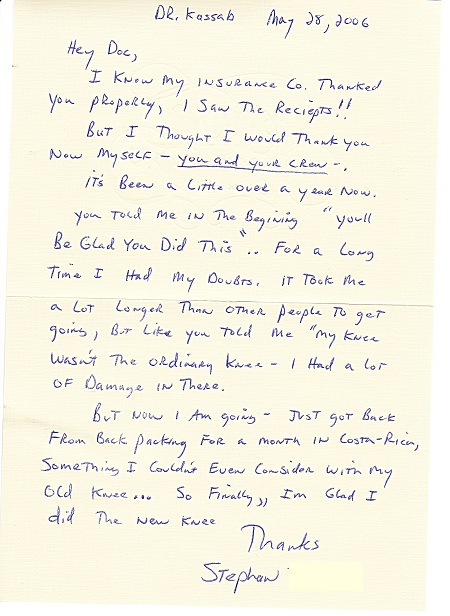 DR. Kassab May 28, 2006
Hey Doc,
I Know My Insurance Co. Thanked
you properly, I Saw The Reciepts!!
But I Thought I Would Thank you
Now Myself - you and your Crew -.
it's Been a Little over a year Now.
you Told Me in The Begining "you'll
Be Glad You Did This".. For a Long
Time I Had My Doubts. iT Took Me
a Lot Longer Than other people To get
going, But Like you Told Me "My Knee
Wasn't The ordinary Knee - I Had a Lot
OF Damage in There.
But Now I Am going - Just got Back
From Back packing For a month in Costa-Rica,
Something I Couldn't Even Consider with My
Old Knee... So Finally,, I'm Glad I
did The New Knee
Thanks
Stephan